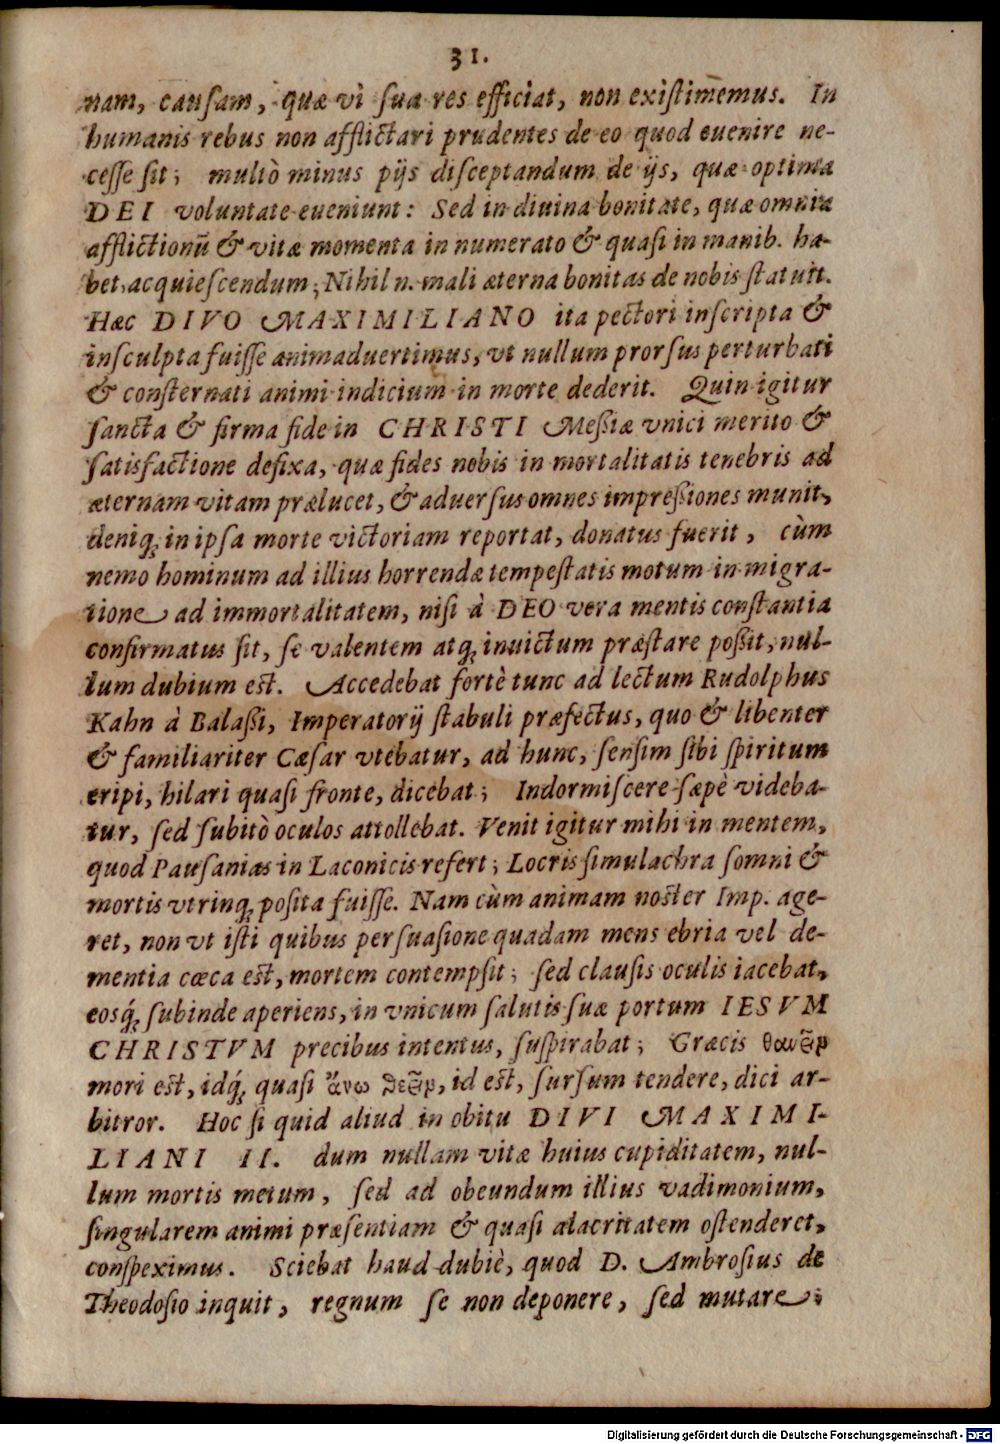 31.
nam, cauſam, quæ vì ſua res efficiat, non exiſtimemus. In
humanis rebus non afflictari prudentes de eo quod euenire ne-
ceſſe ſit; multò minus pijs diſceptandum de ijs, quæ optima
DEI voluntate eueniunt: Sed in diuina bonitate, quæ omnia
afflictionũ & vitæ momenta in numerato & quaſi in manib. ha-
bet, acquieſcendum; Nihil n. mali æterna bonitas de nobis ſtatuit.
Hæc DIVO MAXIMILIANO ita pectori inſcripta &
inſculpta fuiſſe animaduertimus, vt nullum prorſus perturbati
& conſternati animi indicium in morte dederit. Quin igitur
ſancta & firma fide in CHRISTI Meßiæ vnici merito &
ſatisfactione defixa, quæ fides nobis in mortalitatis tenebris ad
æternam vitam prælucet, & aduerſus omnes impreßiones munit,
deniq; in ipſa morte victoriam reportat, donatus fuerit, cùm
nemo hominum ad illius horrendæ tempeſtatis motum in migra-
tione ad immortalitatem, niſi à DEO vera mentis conſtantia
confirmatus ſit, ſe valentem atq; inuictum præſtare poßit, nul-
lum dubium eſt. Accedebat fortè tunc ad lectum Rudolphus
Kahn à Balaßi, Imperatorij ſtabuli præfectus, quo & libenter
& familiariter Cæſar vtebatur, ad hunc, ſenſim ſibi ſpiritum
eripi, hilari quaſi fronte, dicebat; Indormiſcere ſæpè videba-
tur, ſed ſubitò oculos attollebat. Venit igitur mihi in mentem,
quod Pauſanias in Laconicis refert; Locris ſimulachra ſomni &
mortis vtrinq; poſita fuiſſe. Nam cùm animam noſter Imp. age-
ret, non vt iſti quibus perſuaſione quadam mens ebria vel de-
mentia cœca eſt, mortem contempſit; ſed clauſis oculis iacebat,
eosq́; ſubinde aperiens, in vnicum ſalutis ſuæ portum IESVM
CHRISTVM precibus intentus, ſuſpirabat; Græcis θανεῖν
mori eſt, idq́; quaſi ἄνω θεῖν, id eſt, ſurſum tendere, dici ar-
bitror. Hoc ſi quid aliud in obitu DIVI MAXIMI-
LIANI II. dum nullam vitæ huius cupiditatem, nul-
lum mortis metum, ſed ad obeundum illius vadimonium,
ſingularem animi præſentiam & quaſi alacritatem oſtenderet,
conſpeximus. Sciebat haud dubiè, quod D. Ambroſius de
Theodoſio inquit, regnum ſe non deponere, ſed mutare;
Digitalisierung gefördert durch die Deutsche Forschungsgemeinschaft - DFG